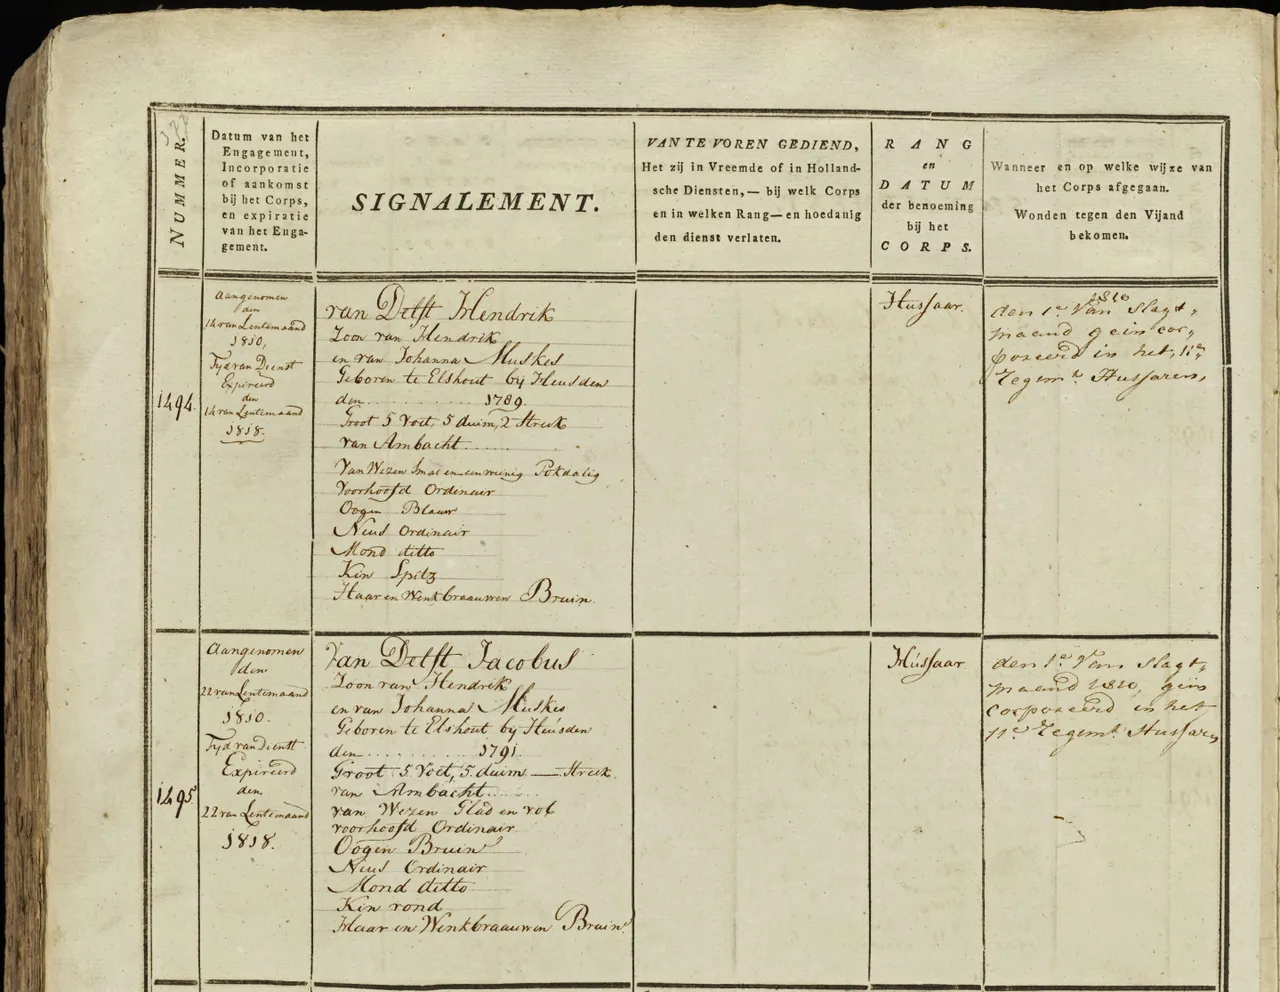 NUMMER.
Datum van het
Engagement,
Incorporatie
of aankomst
bij het Corps,
en expiratie
van het Enga-
gement.
SIGNALEMENT.
VAN TE VOREN GEDIEND,
Het zij in Vreemde of in Holland-
sche Diensten,— bij welk Corps
en in welken Rang— en hoedanig
den dienst verlaten.
RANG
en
DATUM
der benoeming
bij het
CORPS.
Wanneer en op welke wijze van
het Corps afgegaan.
Wonden tegen den Vijand
bekomen.
1494.
Aangenomen
den
14 van Lentemaand
1810,
Tyd van Dienst
Expireerd
den
14 van Lentemaand
1818.
van Delft Hendrik
Zoon van Hendrik
en van Johanna Muskes
Geboren te Elshout by Heusden
den ............ 1789.
Groot 5 Voet, 5 duim, 2 Streek
van Ambacht ......
Van Wezen Smal en een weinig Pokdalig
Voorhoofd Ordinair
Oogen Blauw
Neus Ordinair
Mond ditto
Kin Spitz
Haar en Wenkbraauwen Bruin.
Hussaar.
1810
den 1e Van Slagt-
maand gein cor-
poreerd in het 11e
Regemt Hussaren,
1495
Aangenomen
den
22 van Lentemaand
1810.
Tyd van Dienst
Expireerd
den
22 van Lentemaand
1818.
Van Delft Jacobus
Zoon van Hendrik
en van Johanna Muskes
Geboren te Elshout by Heusden
den ............ 1791.
Groot 5 Voet, 5 duim — Streek.
van Ambacht ......
van Wezen Glad en vol
voorhoofd Ordinair
Oogen Bruin
Neus Ordinair
Mond ditto
Kin rond
Haar en Wenkbraauwen Bruin
Hussaar
den 1e Van Slagt-
maand 1810, gein
corporeerd in het
11e Regemt Hussaren